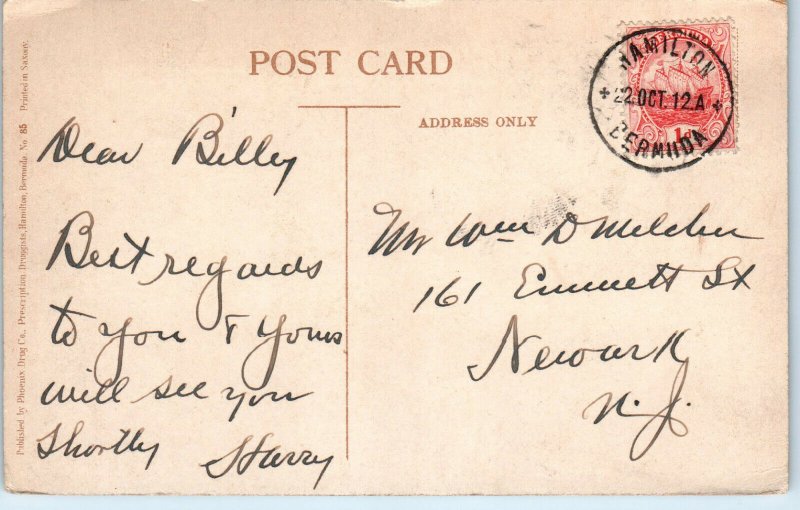 POST CARD
ADDRESS ONLY
Published by Phoenix Drug Co., Prescription Druggists, Hamilton, Bermuda. No. 85 Printed in Saxony.
HAMILTON
22.OCT.12.A
BERMUDA
BERMUDA
1d
Dear Billy
Best regards
to you & yours
will see you
shortly Harry
Mr Wm D Melcher
161 Emmett St
Newark
N.J.